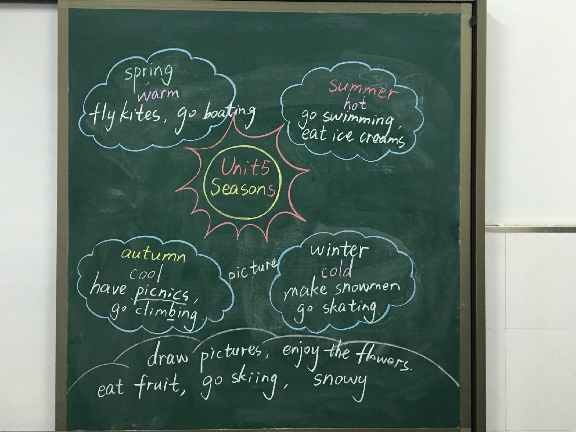 spring
warm
fly kites, go boating
summer
hot
go swimming,
eat ice creams
Unit5
Seasons
autumn
cool
have picnics,
go climbing
picture
winter
cold
make snowmen
go skating
draw pictures, enjoy the flowers.
eat fruit, go skiing, snowy